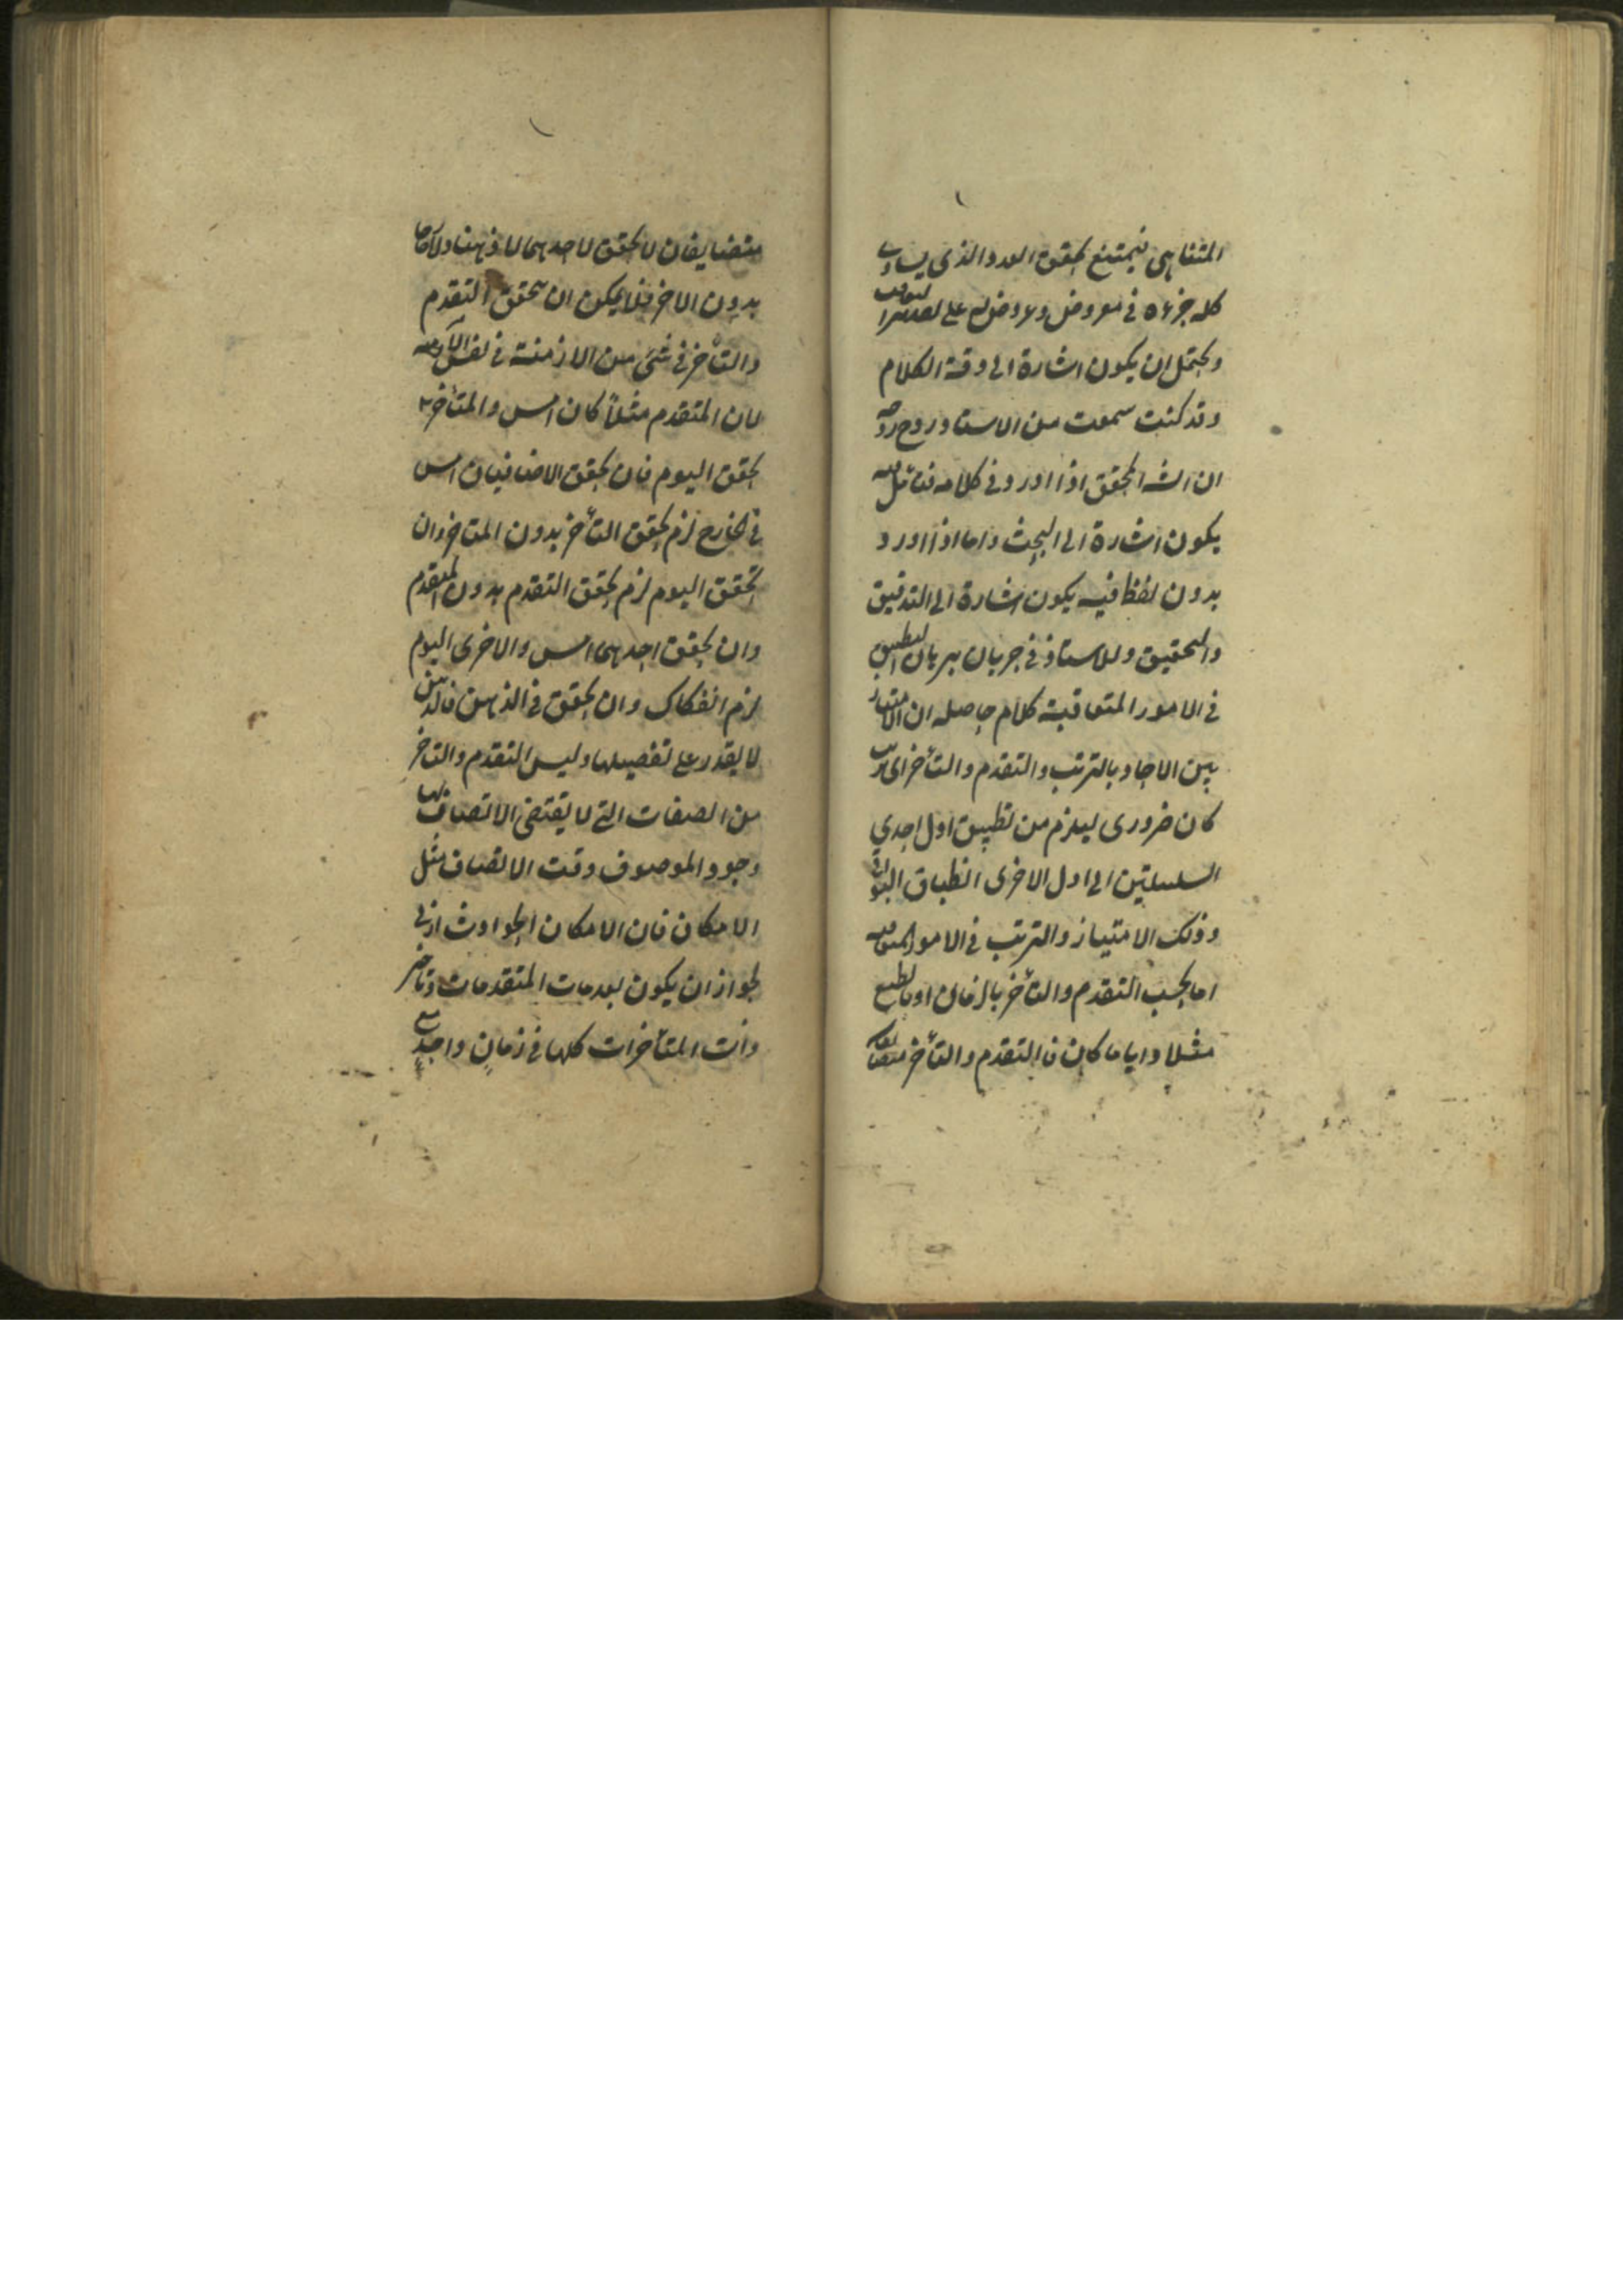 المتناهى فيمتنع تحقق العدد الذى يساوى
كله جزءه فى معروض ومعروض له على
ويحتمل ان يكون اشارة الى دقة الكلام
وقد كنت سمعت من الاستاد روح روحه
ان الشه المحقق اذا اورد فى كلامه فتأمل فيه
يكون اشارة الى البحث واما اذا اورد
بدون لفظ فيه يكون اشارة الى التدقيق
والتحقيق وللاستاذ فى جريان برهان التطبيق
فى الامور المتعاقبة كلام حاصله ان الامتياز
بين الاحاد بالترتب والتقدم والتأخر اى ترتب
كان ضرورى ليلزم من تطبيق اول احدى
السلسلتين الى اول الاخرى انطباق البواقى
وذلك الامتياز والترتب فى الامور المتعاقبة
اما بحسب التقدم والتأخر بالزمان او بالطبع
مثلا واياما كان فالتقدم والتأخر متضايفان
متضايفان لا تحقق لاحدهما لا ذهنا ولا خارجا
بدون الاخر فلا يمكن ان يتحقق التقدم
والتأخر فى شئ من الازمنة فى نفس الامر
لان المتقدم مثلاً كان امس والمتأخر
تحقق اليوم فان تحقق الاضافيان امس
فى الخارج لزم تحقق التأخر بدون المتاخر وان
تحقق اليوم لزم تحقق التقدم بدون المتقدم
وان تحقق احدهما امس والاخرى اليوم
لزم انفكاك وان تحقق فى الذهن فالذهن
لا يقدر على تفصيلها وليس التقدم والتاخر
من الصفات التى لا يقتضى الاتصاف بها
وجود الموصوف وقت الاتصاف مثل
الامكان فان الامكان الحوادث ازلى
لجواز ان يكون بعدمات المتقدمات وتاخر
ذات المتأخرات كلها فى زمانٍ واحدٍ